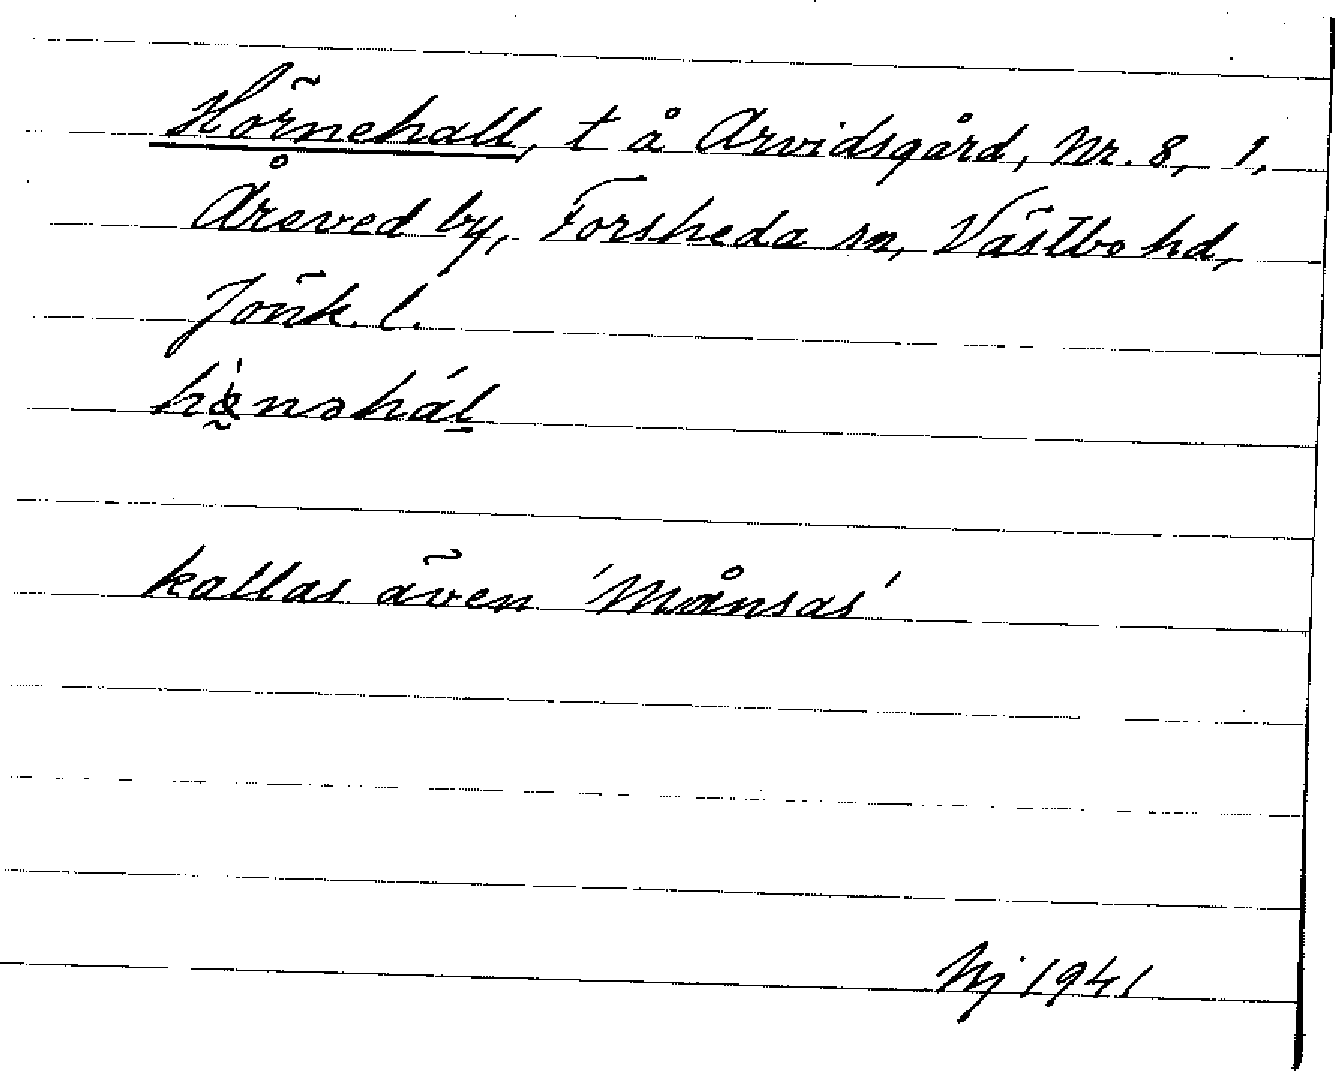 Hörnehall, t å Arvidsgård, Nr. 8, 1,
Åreved by, Forsheda sn, Västbo hd,
Jönk. l.
kallas även 'Månsas'
Nj 1941